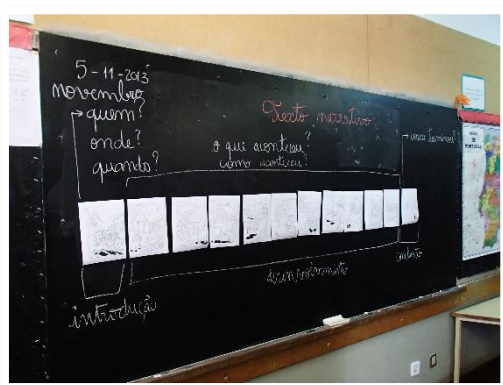 5-11-2013
novembro
quem?
onde?
quando?
Texto narrativo
o que aconteceu?
como aconteceu?
como terminou?
introdução
desenvolvimento
conclusão